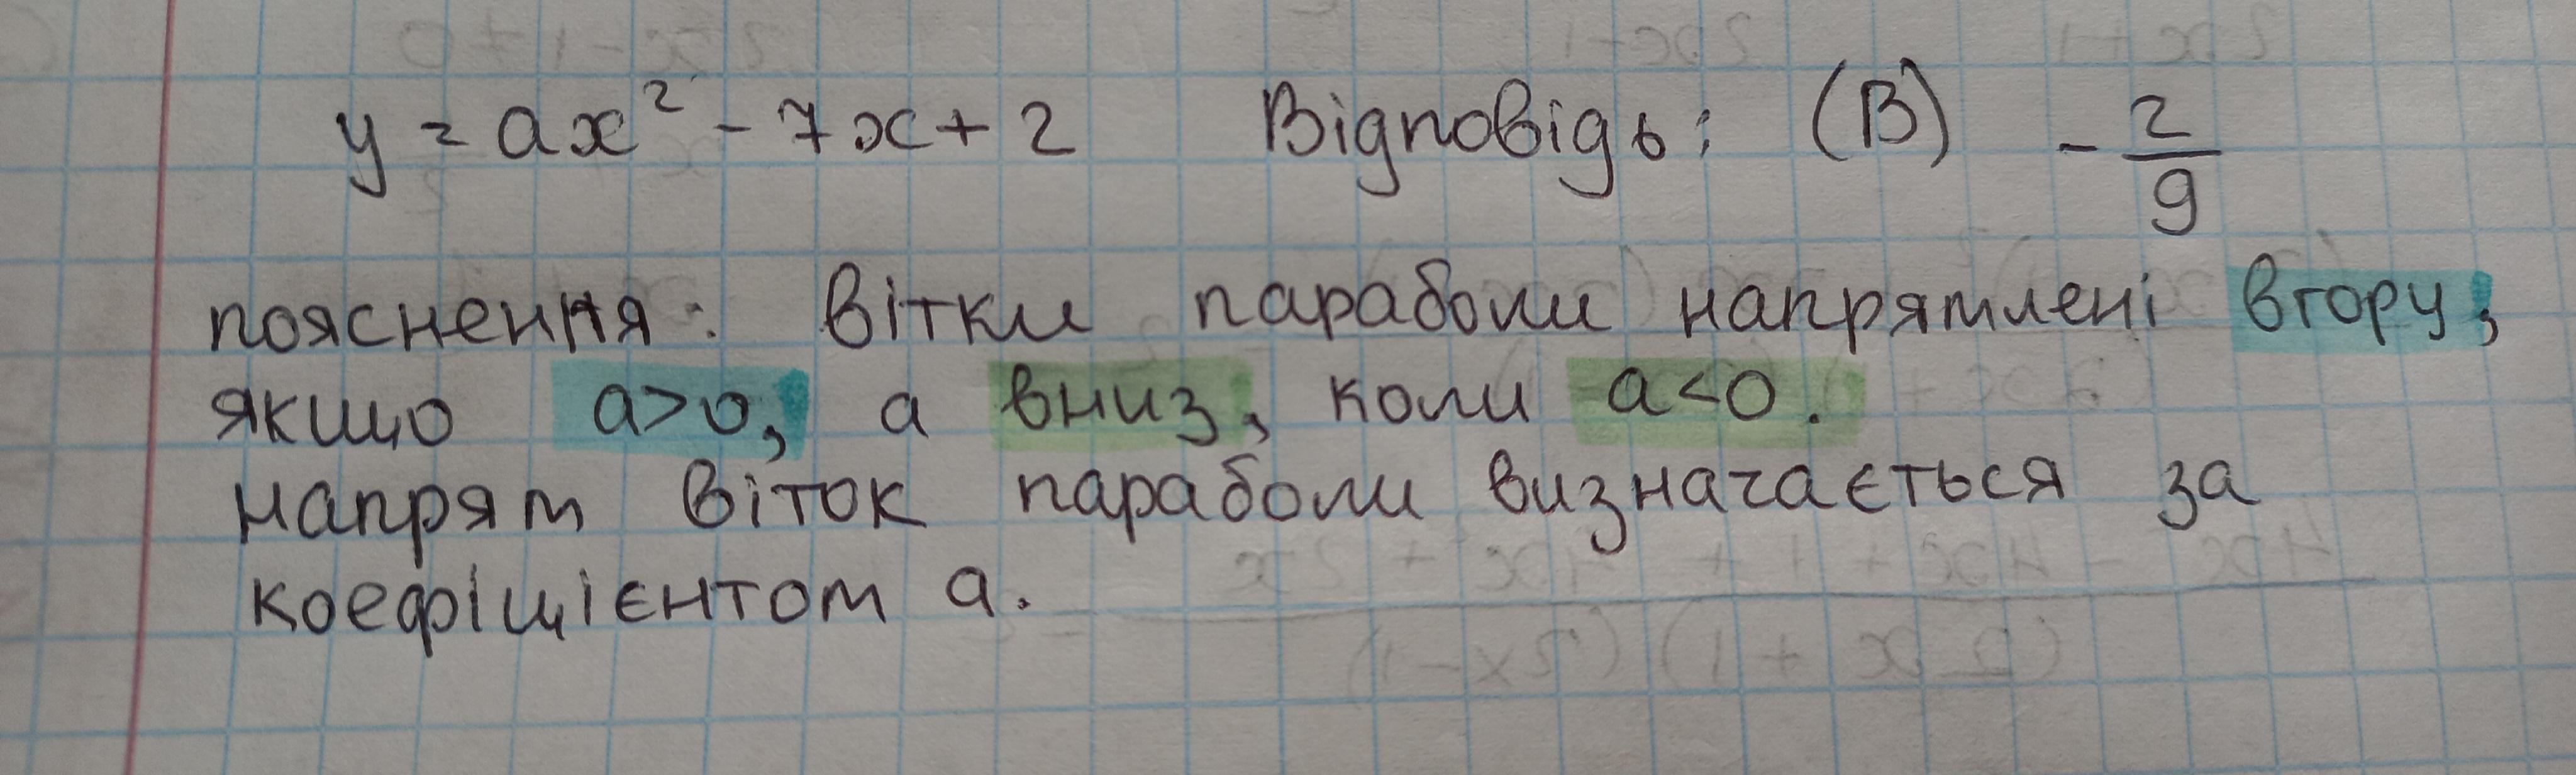 y = ax² - 7x + 2 Відповідь: (В) - 2/9
пояснення: вітки параболи напрямлені вгору,
якщо a>0, а вниз, коли a<0.
напрям віток параболи визначається за
коефіцієнтом a.